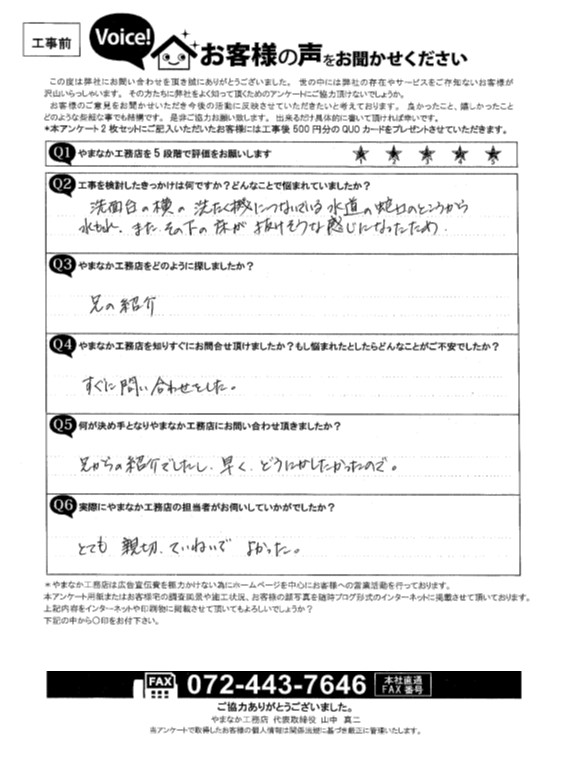 工事前
Voice!
お客様の声をお聞かせください
この度は弊社にお問い合わせを頂き誠にありがとうございました。 世の中には弊社の存在やサービスをご存知ないお客様が
沢山いらっしゃいます。その方たちに弊社をよく知って頂くためのアンケートにご協力頂けないでしょうか。
お客様のご意見をお聞かせいただき今後の活動に反映させていただきたいと考えております。 良かったこと、嬉しかったこと
どのような些細な事でも結構です。 是非ご協力お願い致します。 出来るだけ具体的に書いて頂ければ幸いです。
*本アンケート2枚セットにご記入いただいたお客様には工事後500円分のQUOカードをプレゼントさせていただきます。
Q1 やまなか工務店を5段階で評価をお願いします
★ ★ ★ ★ ★
1 2 3 4 5
Q2 工事を検討したきっかけは何ですか?どんなことで悩まれていましたか?
洗面台の横の洗たく機につないでいる水道の蛇口のところから
水もれ、また、その下の床が抜けそうな感じになったため。
Q3 やまなか工務店をどのように探しましたか?
兄の紹介
Q4 やまなか工務店を知りすぐにお問合せ頂けましたか?もし悩まれたとしたらどんなことがご不安でしたか?
すぐに問い合わせをした。
Q5 何が決め手となりやまなか工務店にお問い合わせ頂きましたか?
兄からの紹介でしたし、早く、どうにかしたかったので。
Q6 実際にやまなか工務店の担当者がお伺いしていかがでしたか?
とても 親切、ていねいで よかった。
*やまなか工務店は広告宣伝費を極力かけない為にホームページを中心にお客様への営業活動を行っております。
本アンケート用紙またはお客様宅の調査風景や施工状況、お客様の顔写真を随時ブログ形式のインターネットに掲載させて頂いております。
上記内容をインターネットや印刷物に掲載させて頂いてもよろしいでしょうか?
下記の中から○印をお付下さい。
FAX 072-443-7646 本社直通
FAX番号
ご協力ありがとうございました。
やまなか工務店 代表取締役 山中 真二
当アンケートで取得したお客様の個人情報は関係法規に基づき厳正に管理いたします。